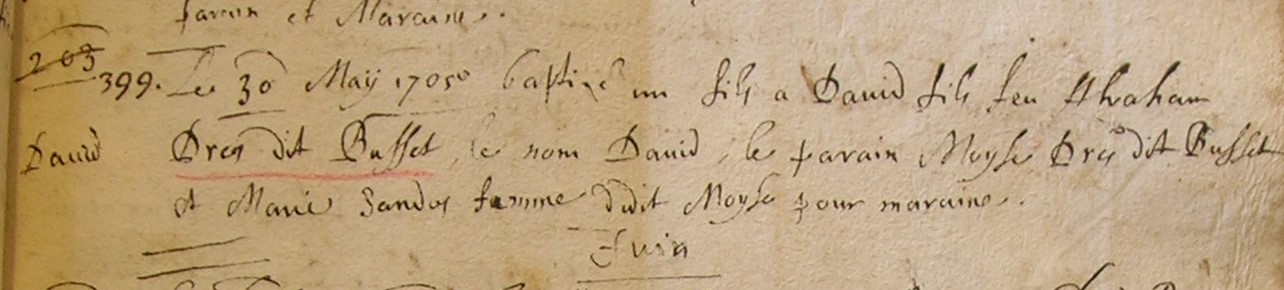 parain et Maraine.
203
399. Le 30 Maij 1705 baptizé un fils a David fils feu Abraham
David Dreq dit Busset, le nom David, le parain Moyse Dreq dit Busset
et Marie Sandos femme dudit Moyse pour maraine.
Juin